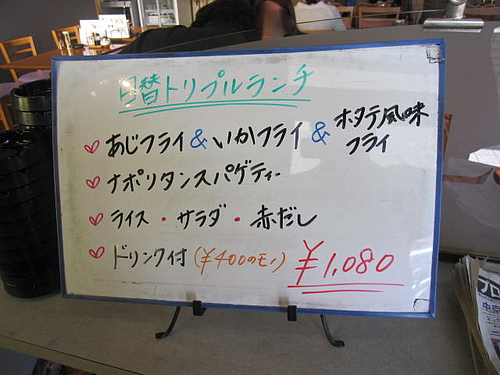 日替トリプルランチ
♡ あじフライ & いかフライ & ホタテ風味フライ
♡ ナポリタンスパゲティー
♡ ライス・サラダ・赤だし
♡ ドリンク付 (¥400のモノ) ¥1,080